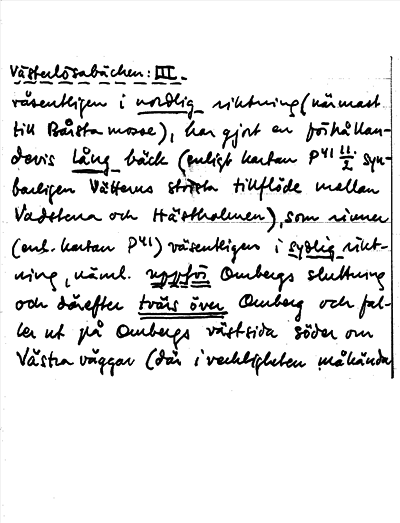 Västerlösabäcken: III.
väsentligen i nordlig riktning (närmast
till Båsta mosse), har gjort en förhållan-
devis lång bäck (enligt kartan P41 11/2 syn-
barligen Vätterns största tillflöde mellan
Vadstena och Hästholmen), som rinner
(enl. kartan P41) väsentligen i sydlig rikt-
ning, näml. uppför Ombergs sluttning
och därefter tvärs över Omberg och fal-
ler ut på Ombergs västsida söder om
Västra väggar (där i verkligheten